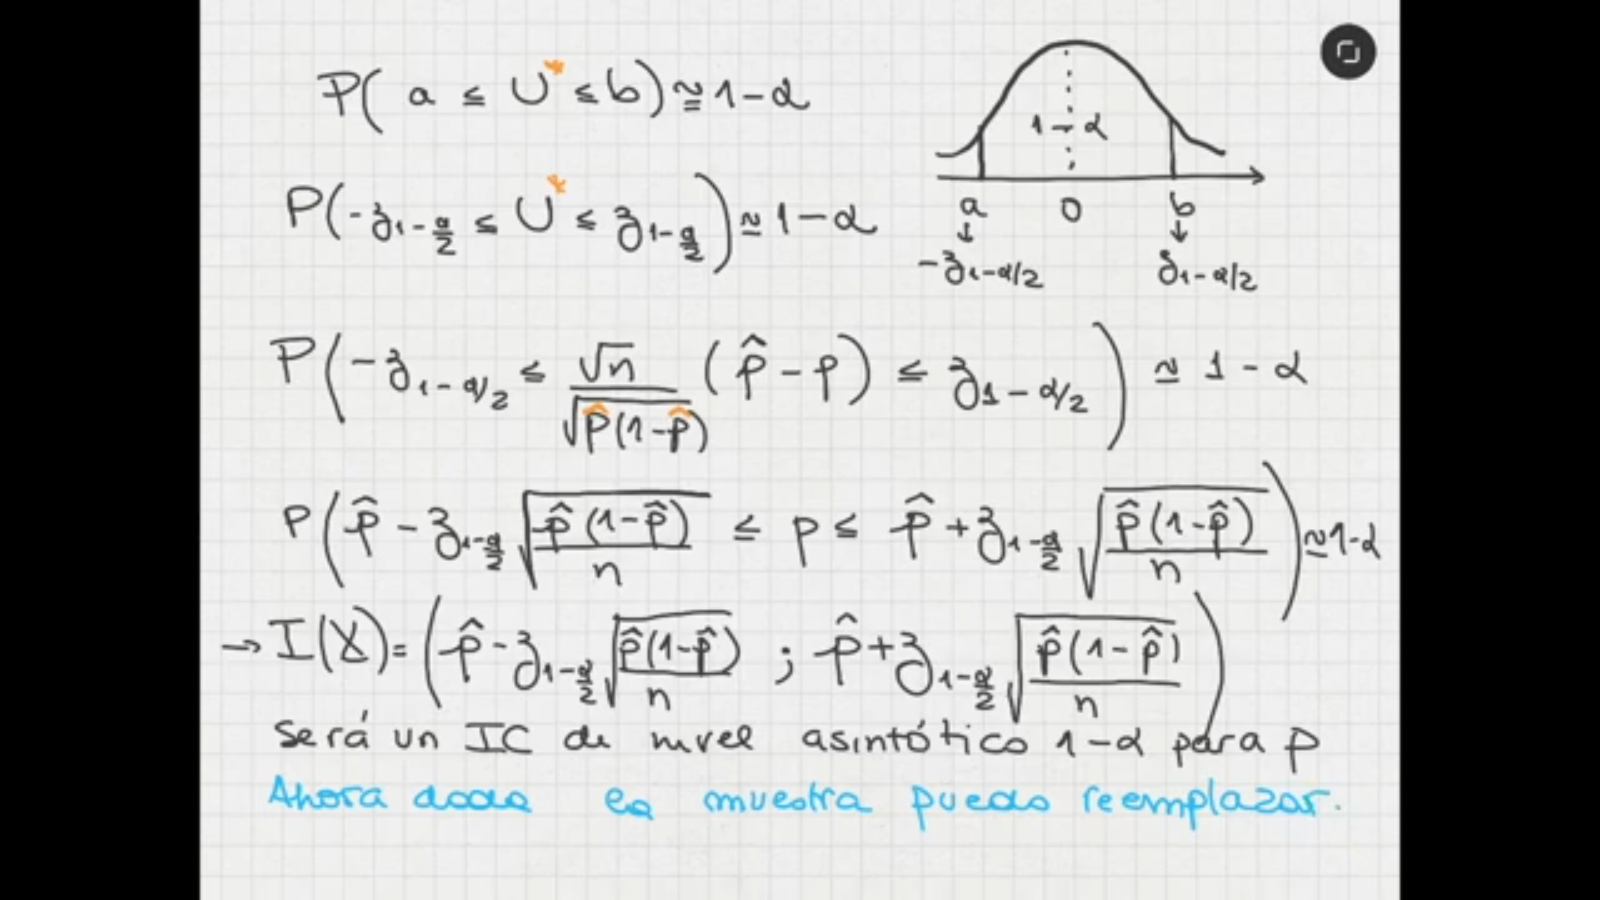 P( a ≤ U* ≤ b) ≅ 1-α
1-α
P(-z_{1-α/2} ≤ U* ≤ z_{1-α/2}) ≅ 1-α
a 0 b
↓ ↓
-z_{1-α/2} z_{1-α/2}
P(-z_{1-α/2} ≤ √n/√(p̂(1-p̂)) (p̂-p) ≤ z_{1-α/2}) ≅ 1-α
P(p̂ - z_{1-α/2} √(p̂(1-p̂)/n) ≤ p ≤ p̂ + z_{1-α/2} √(p̂(1-p̂)/n)) ≅ 1-α
→ I(X) = (p̂ - z_{1-α/2} √(p̂(1-p̂)/n) ; p̂ + z_{1-α/2} √(p̂(1-p̂)/n))
será un IC de nivel asintótico 1-α para p
Ahora dada la muestra puedo reemplazar.